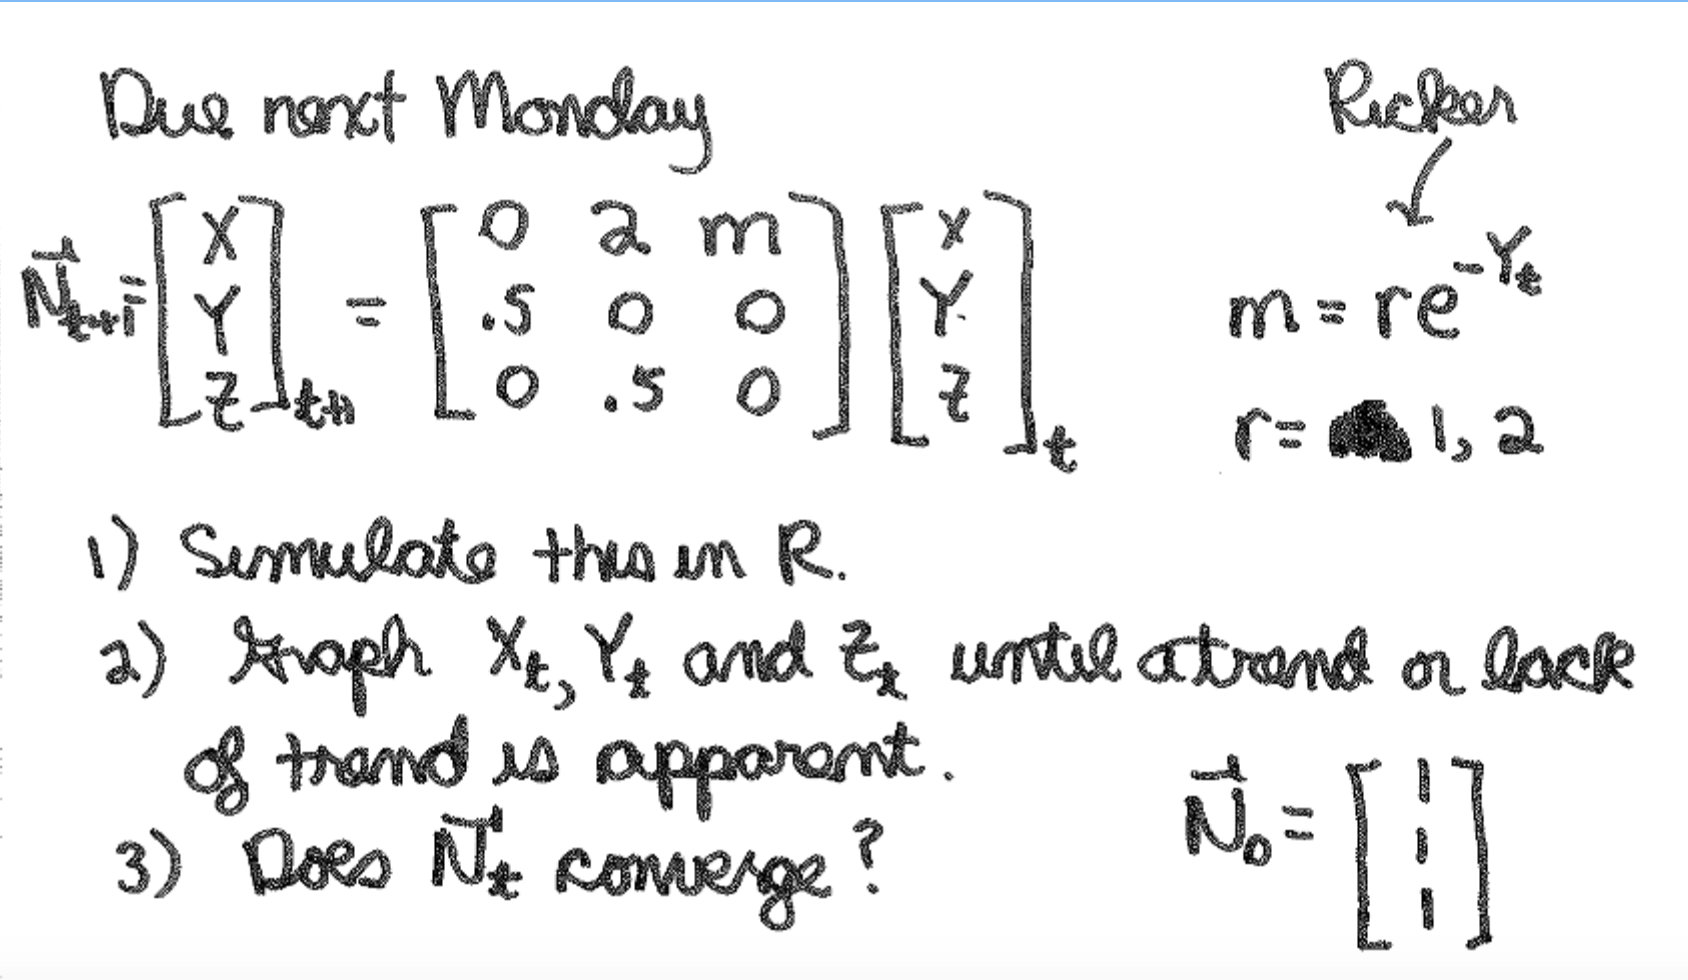 Due next Monday
Ricker
N⃗t+1 = [X Y Z]t+1 = [0 2 m; .5 0 0; 0 .5 0] [X Y Z]t
m = re^-Yt
r = 1, 2
1) Simulate this in R.
2) Graph Xt, Yt and Zt until a trend or lack
of trend is apparent.
N⃗0 = [1 1 1]
3) Does N⃗t converge?